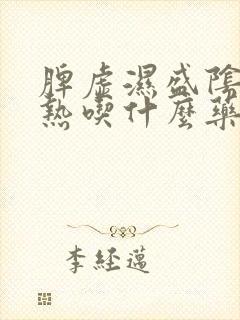 脾虛濕盛陰
熱喫什麼藥
李經邁